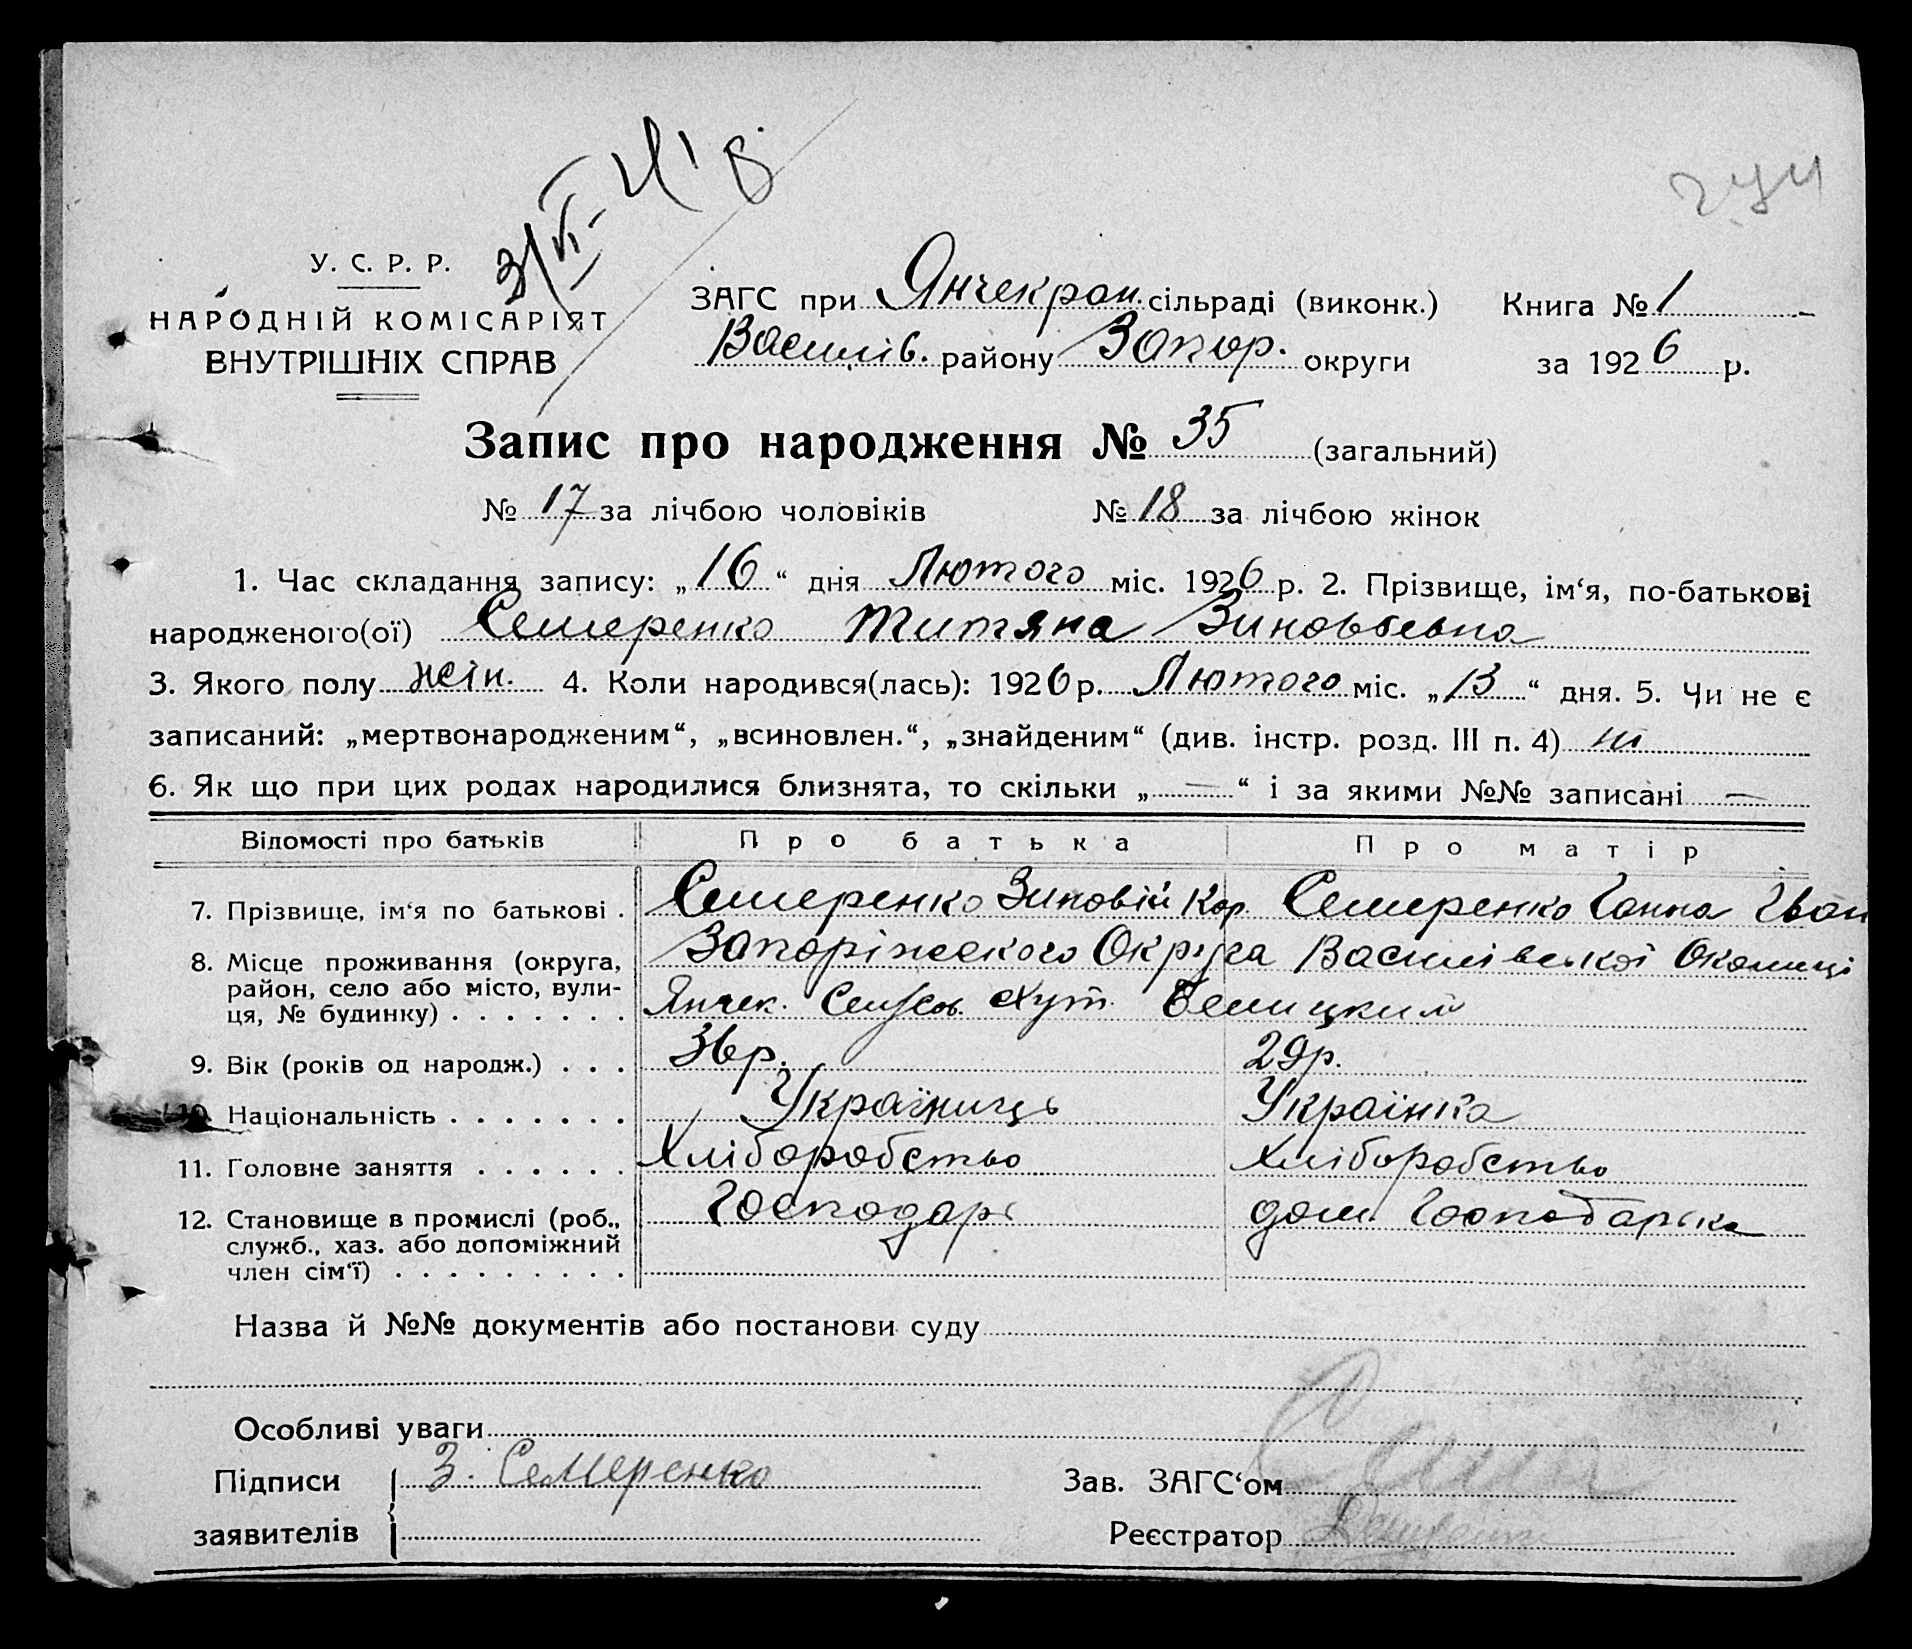 3/VI-41 р
У. С. Р. Р.
НАРОДНІЙ КОМІСАРІЯТ
ВНУТРІШНІХ СПРАВ
ЗАГС при Янчекрак. сільраді (виконк.) Книга № 1
Василів. району Запор. округи за 1926 р.
Запис про народження № 35 (загальний)
№ 17 за лічбою чоловіків № 18 за лічбою жінок
1. Час складання запису: „16“ дня Лютого міс. 1926 р. 2. Прізвище, ім‘я, по-батькові
народженого(ої) Семеренко Титяна Зиновьевна
3. Якого полу жін. 4. Коли народився(лась): 1926 р. Лютого міс. „13“ дня. 5. Чи не є
записаний: „мертвонародженим“, „всиновлен.“, „знайденим“ (див. інстр. розд. III п. 4) ні
6. Як що при цих родах народилися близнята, то скільки „—“ і за якими №№ записані —
Відомості про батьків Про батька Про матір
7. Прізвище, ім‘я по батькові . Семеренко Зиновій Кор. Семеренко Ганна Іван
8. Місце проживання (округа, Запоріжського Округа Василівської Околиці
район, село або місто, вули- Янчек. Хут.
ця, № будинку) . . . . . . .
9. Вік (років од народж.) . . . 36р. 29р.
10. Національність . . . . . . . Україниць Українка
11. Головне заняття . . . . . . Хліборобство Хліборобство
12. Становище в промислі (роб., Господарь дом. Господарька
служб., хаз. або допоміжний
член сім‘ї) . . . . . . . . .
Назва й №№ документів або постанови суду
Особливі уваги
Підписи З. Семеренко Зав. ЗАГС‘ом
заявителів Реєстратор